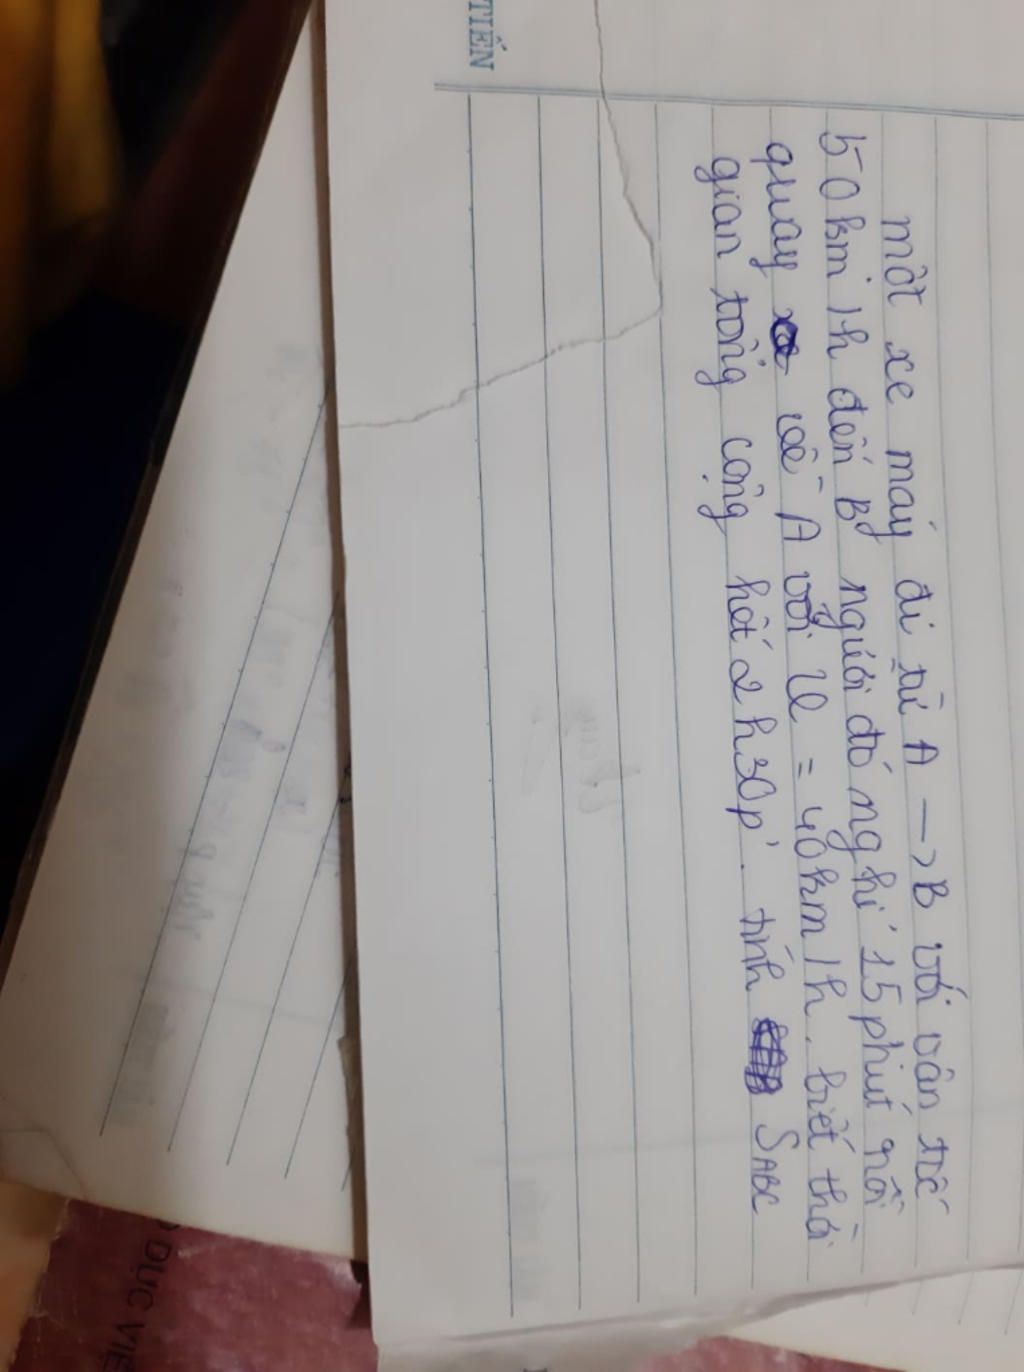 TIẾN
một xe máy đi từ A → B với vân tốc
50km/h đến B người đó nghỉ 15 phút rồi
quay về A với V = 40km/h. biết thời
gian tổng cộng hết 2h30p'. tính SABC
DỤC VIỆ